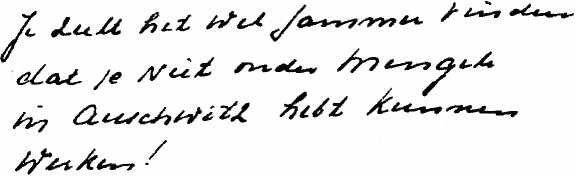 Je zult het wel jammer vinden
dat je niet onder Mengele
in Auschwitz hebt kunnen
werken!